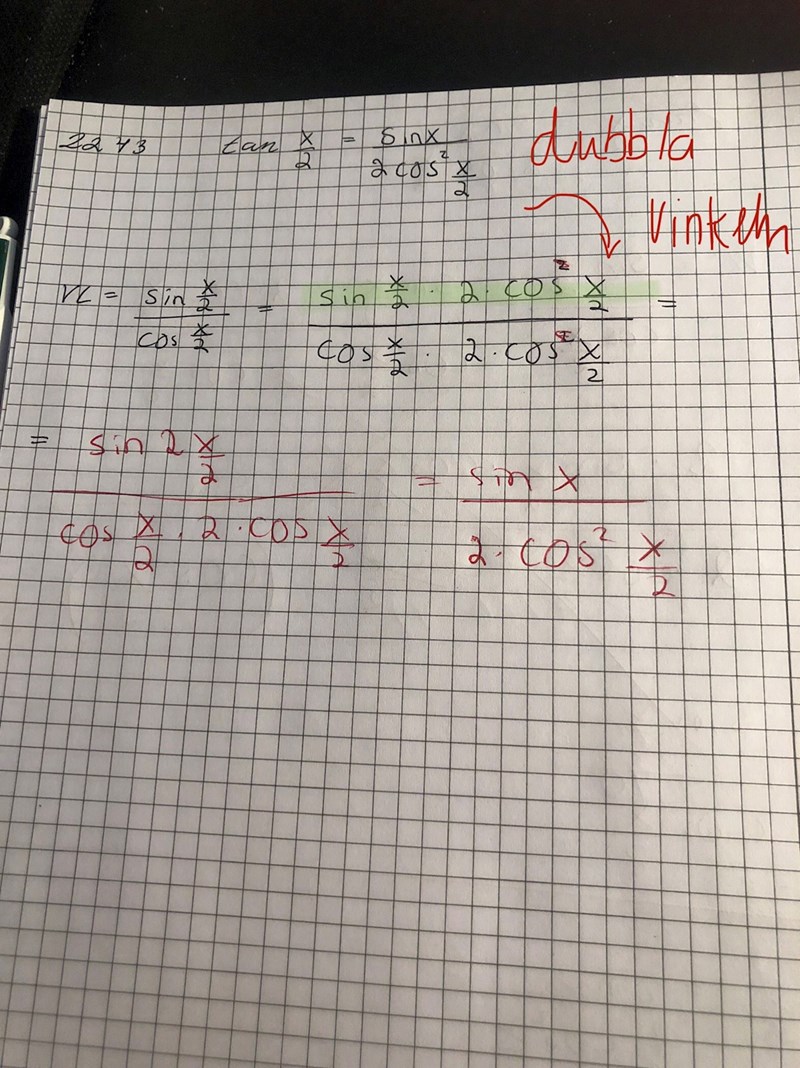 2243 tan x/2 = sinx / 2 cos² x/2
dubbla
vinkeln
VL = sin x/2 / cos x/2 = sin x/2 · 2 · cos² x/2 / cos x/2 · 2 · cos² x/2 =
= sin 2 x/2 / cos x/2 · 2 · cos x/2 = sin x / 2 · cos² x/2